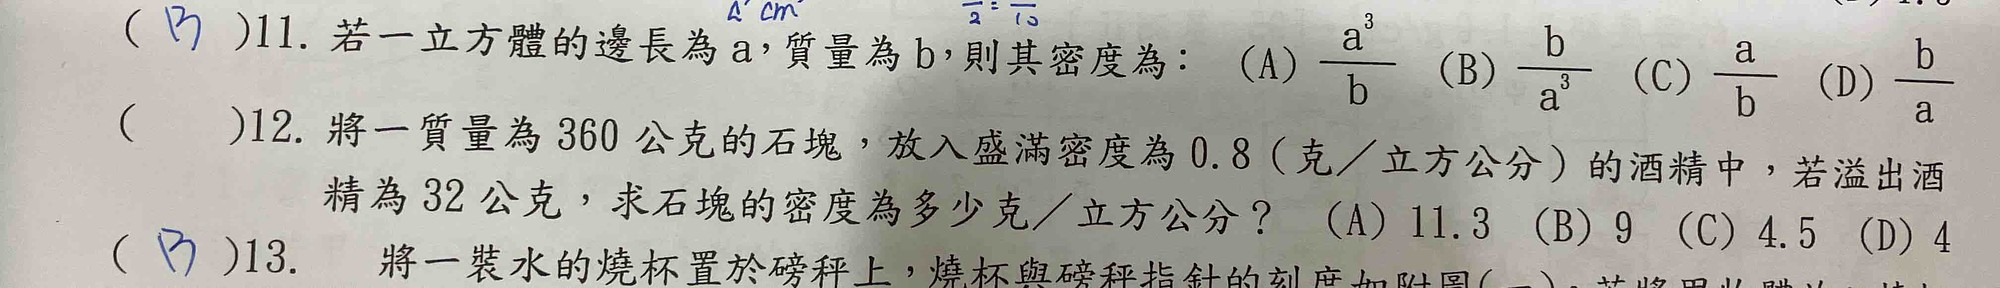 a³ cm³ /2 = /10
( B )11. 若一立方體的邊長為 a，質量為 b，則其密度為： (A) a³/b (B) b/a³ (C) a/b (D) b/a
( )12. 將一質量為 360 公克的石塊，放入盛滿密度為 0.8（克／立方公分）的酒精中，若溢出酒
精為 32 公克，求石塊的密度為多少克／立方公分？ (A) 11.3 (B) 9 (C) 4.5 (D) 4
( B )13. 將一裝水的燒杯置於磅秤上，燒杯與磅秤指針的刻度如附圖(一)，若將